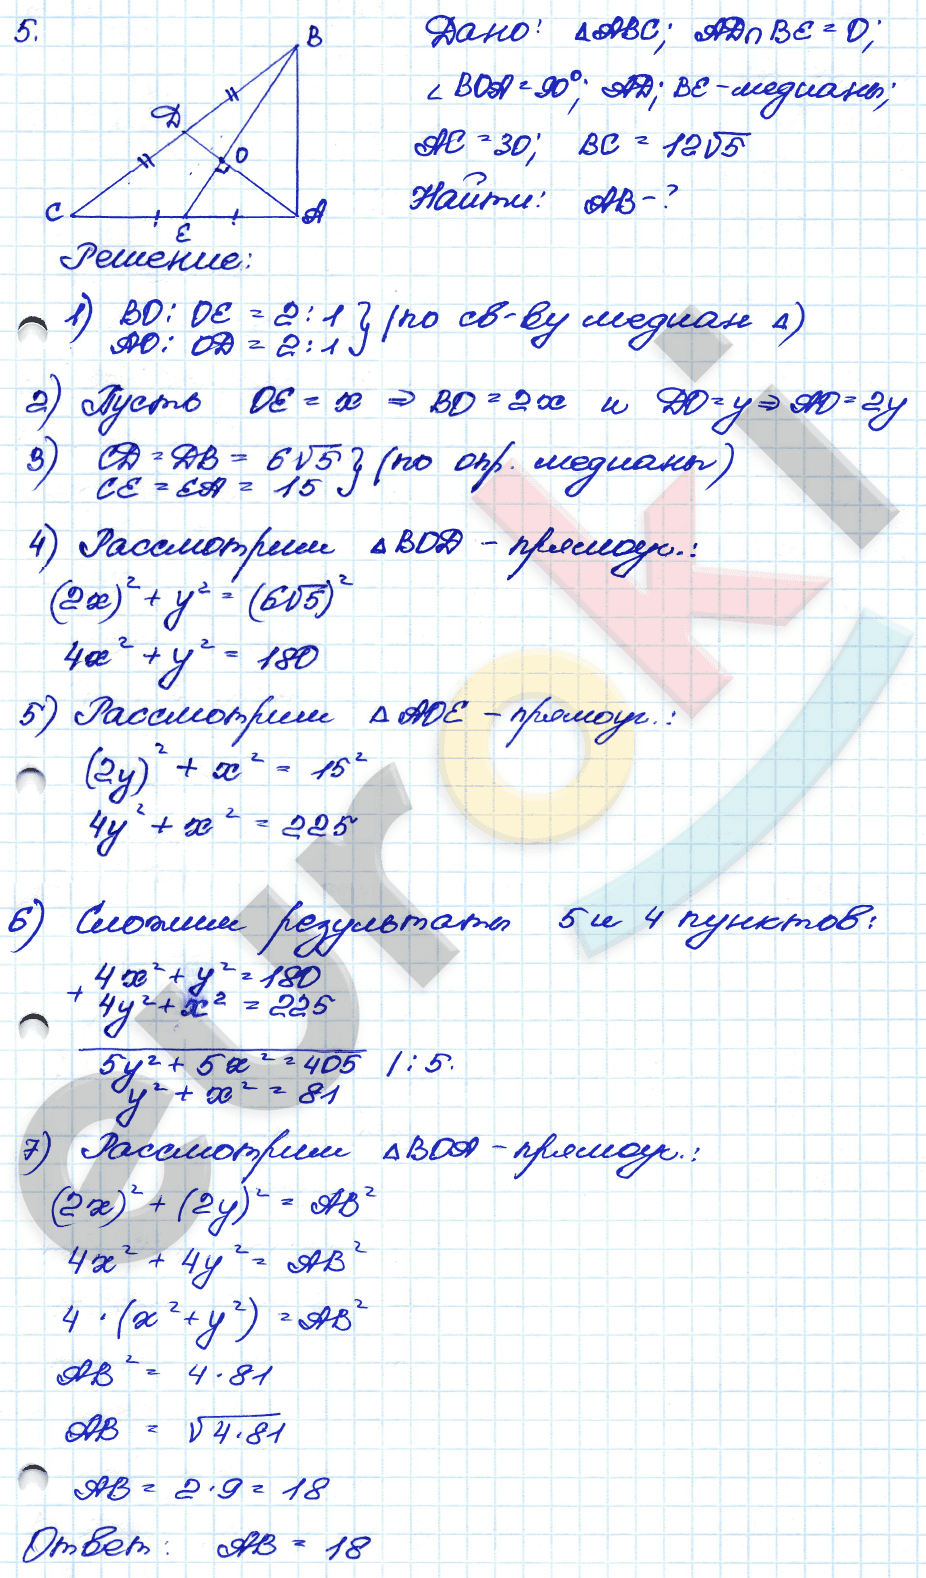 5.
B
D
O
C
E
A
Дано: △ABC; AD∩BE=O;
∠BOA=90°; AD; BE-медианы;
AC=30; BC=12√5
Найти: AB-?
Решение:
1) BO:OE=2:1} (по св-ву медиан △)
AO:OD=2:1
2) Пусть OE=x⇒BO=2x и DO=y⇒AO=2y
3) CD=DB=6√5} (по опр. медианы)
CE=EA=15
4) Рассмотрим △BOD-прямоуг.:
(2x)²+y²=(6√5)²
4x²+y²=180
5) Рассмотрим △AOE-прямоуг.:
(2y)²+x²=15²
4y²+x²=225
6) Сложим результаты 5 и 4 пунктов:
+ 4x²+y²=180
4y²+x²=225
5y²+5x²=405 |:5.
y²+x²=81
7) Рассмотрим △BOA-прямоуг.:
(2x)²+(2y)²=AB²
4x²+4y²=AB²
4·(x²+y²)=AB²
AB²=4·81
AB=√4·81
AB=2·9=18
Ответ: AB=18
euroki